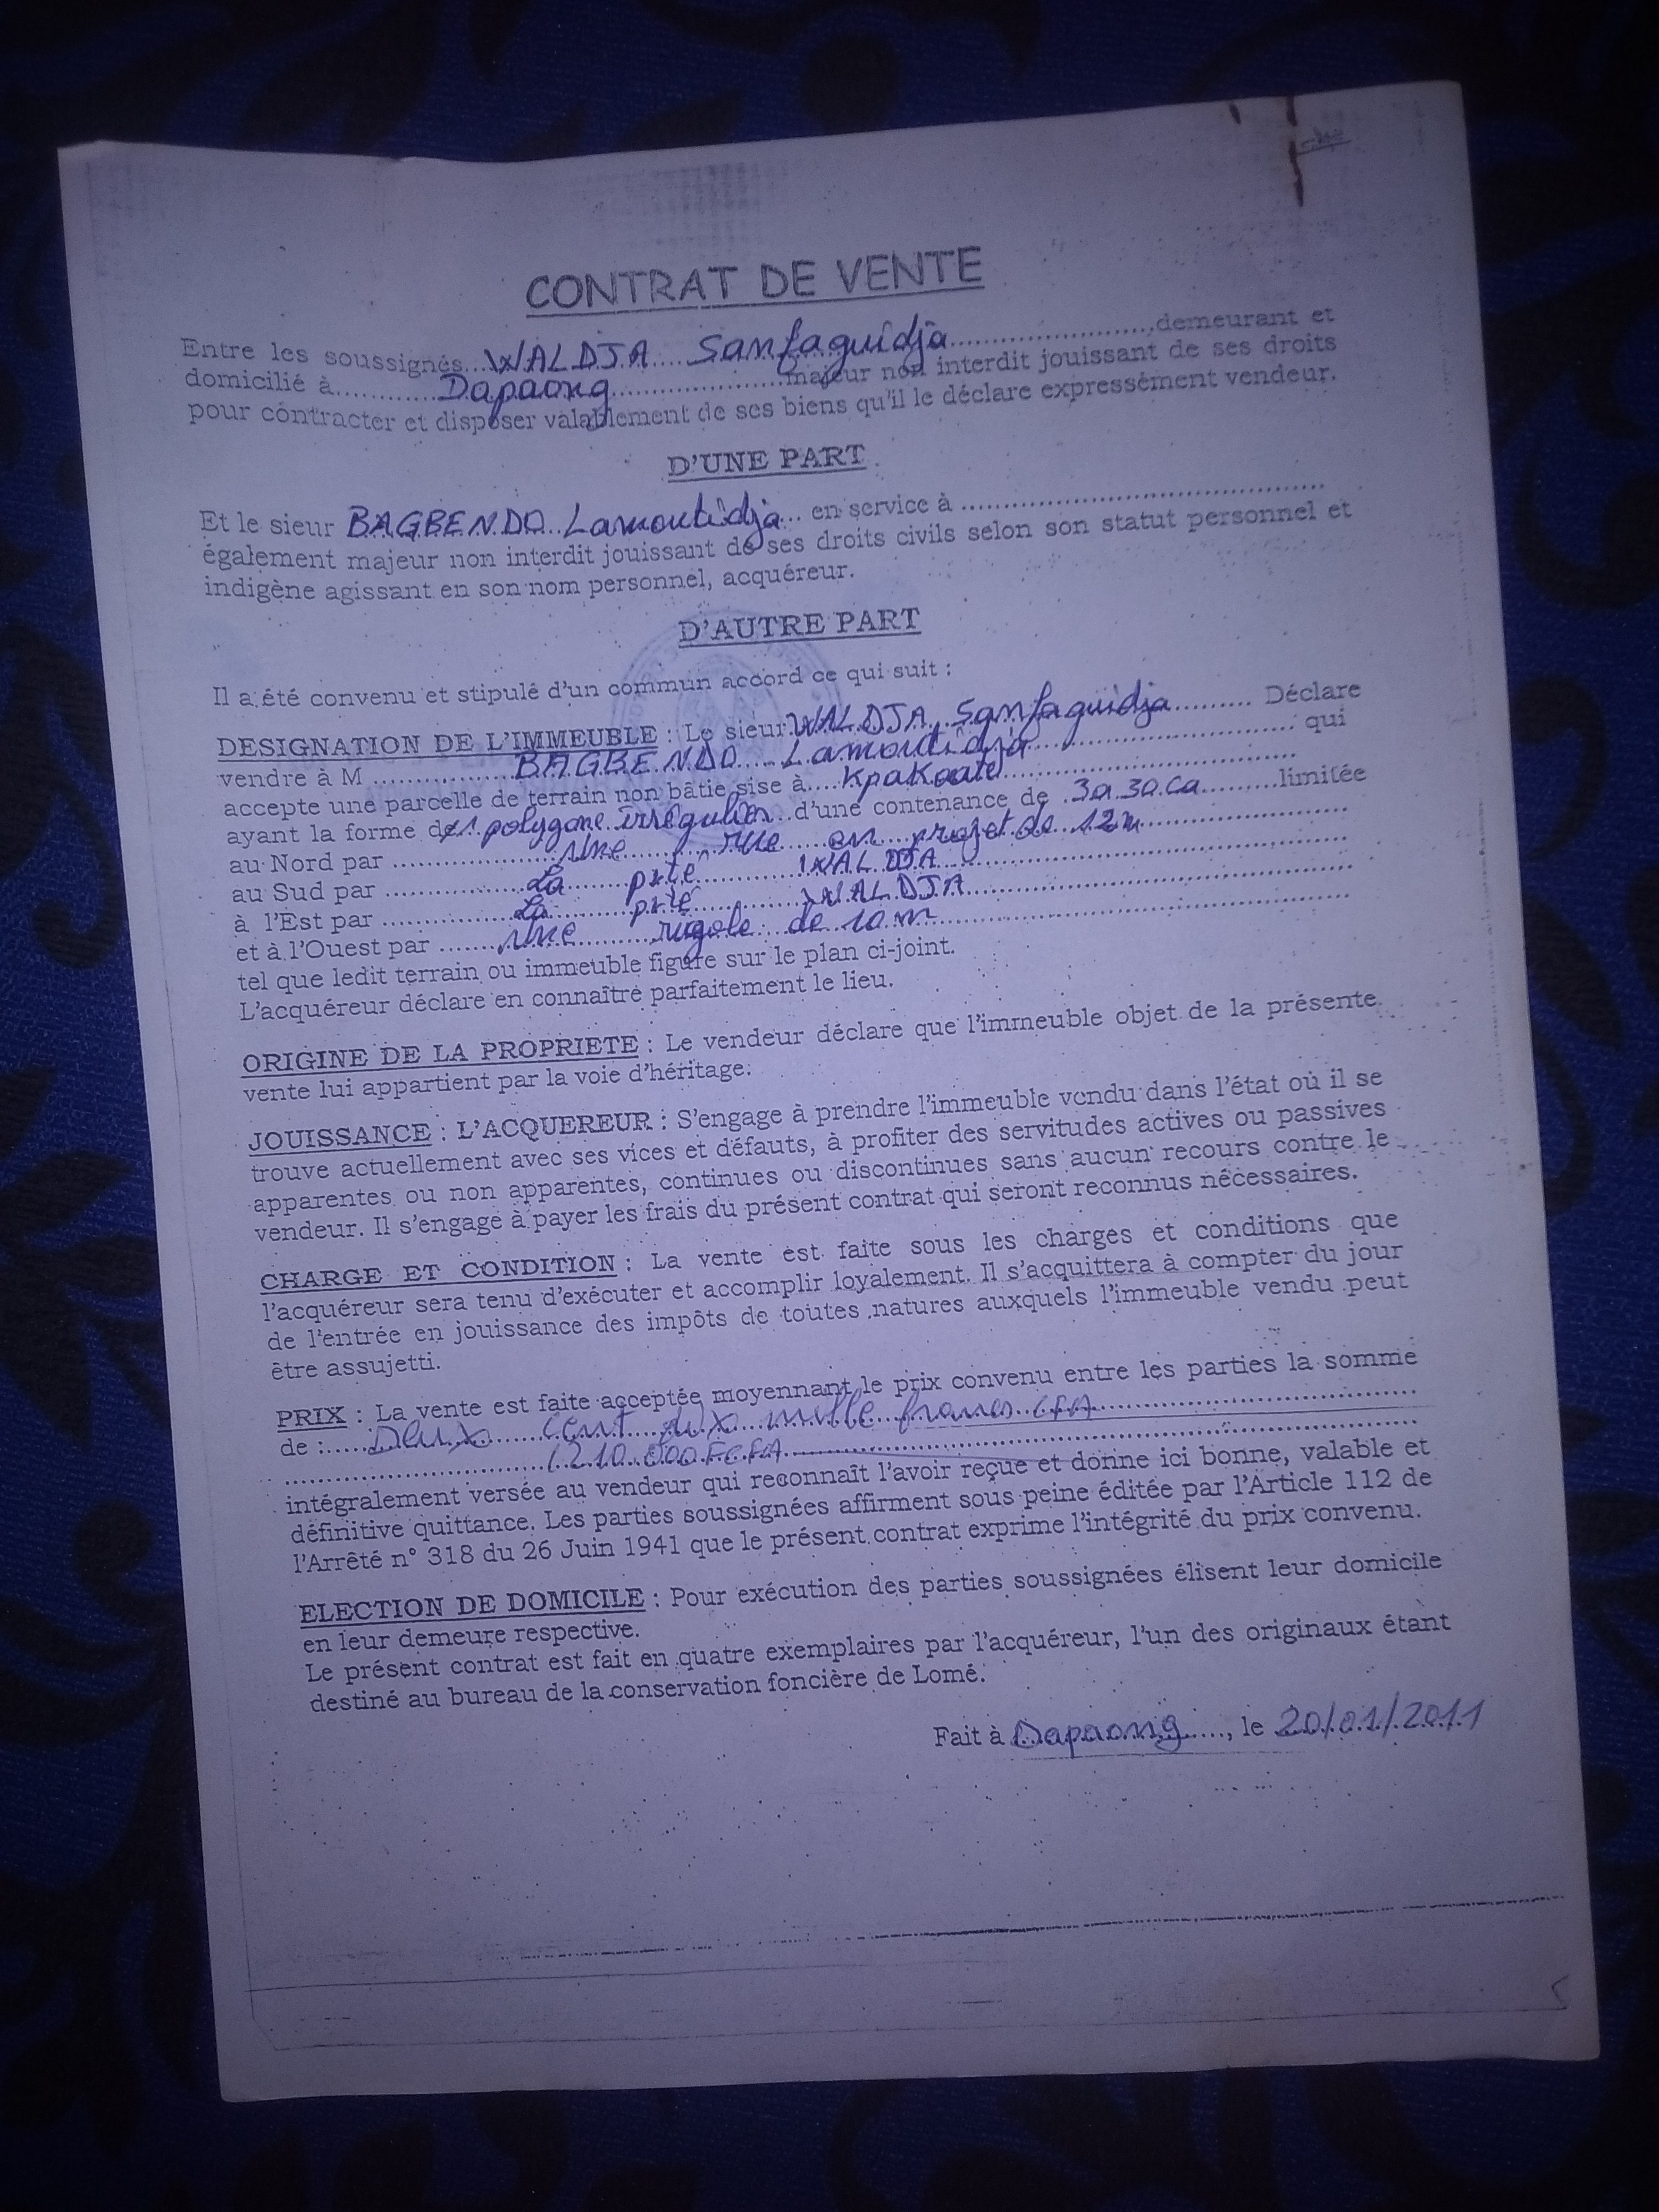 CONTRAT DE VENTE
Entre les soussignés...WALDJA Sanfaguidja..........................,demeurant et
domicilié à............Dapaong....................majeur non interdit jouissant de ses droits
pour contracter et disposer valablement de ses biens qu'il le déclare expressément vendeur.
D'UNE PART
Et le sieur BAGBENDO Lamoutidja... en service à ..............................................
également majeur non interdit jouissant de ses droits civils selon son statut personnel et
indigène agissant en son nom personnel, acquéreur.
D'AUTRE PART
Il a été convenu et stipulé d'un commun accord ce qui suit :
DESIGNATION DE L'IMMEUBLE : Le sieur WALDJA Sanfaguidja.......... Déclare
vendre à M ................BAGBENDO Lamoutidja.............................. qui
accepte une parcelle de terrain non bâtie sise à.....Kpakoate...................................
ayant la forme de 1 polygone irrégulier d'une contenance de 3a 30 ca..........limitée
au Nord par ....................une rue en projet de 12m.........................
au Sud par ................La pté WALDJA.............................................
à l'Est par ...............La pté WALDJA.............................................
et à l'Ouest par .......une rigole de 10 m.............................................
tel que ledit terrain ou immeuble figure sur le plan ci-joint.
L'acquéreur déclare en connaître parfaitement le lieu.
ORIGINE DE LA PROPRIETE : Le vendeur déclare que l'immeuble objet de la présente
vente lui appartient par la voie d'héritage.
JOUISSANCE : L'ACQUEREUR : S'engage à prendre l'immeuble vendu dans l'état où il se
trouve actuellement avec ses vices et défauts, à profiter des servitudes actives ou passives
apparentes ou non apparentes, continues ou discontinues sans aucun recours contre le
vendeur. Il s'engage à payer les frais du présent contrat qui seront reconnus nécessaires.
CHARGE ET CONDITION : La vente est faite sous les charges et conditions que
l'acquéreur sera tenu d'exécuter et accomplir loyalement. Il s'acquittera à compter du jour
de l'entrée en jouissance des impôts de toutes natures auxquels l'immeuble vendu peut
être assujetti.
PRIX : La vente est faite acceptée moyennant le prix convenu entre les parties la somme
de :.....Deux cent dix mille francs CFA........................................
..............................(210.000 F CFA..................................................
intégralement versée au vendeur qui reconnaît l'avoir reçue et donne ici bonne, valable et
définitive quittance. Les parties soussignées affirment sous peine éditée par l'Article 112 de
l'Arrêté n° 318 du 26 Juin 1941 que le présent contrat exprime l'intégrité du prix convenu.
ELECTION DE DOMICILE : Pour exécution des parties soussignées élisent leur domicile
en leur demeure respective.
Le présent contrat est fait en quatre exemplaires par l'acquéreur, l'un des originaux étant
destiné au bureau de la conservation foncière de Lomé.
Fait à Dapaong....., le 20/01/2011